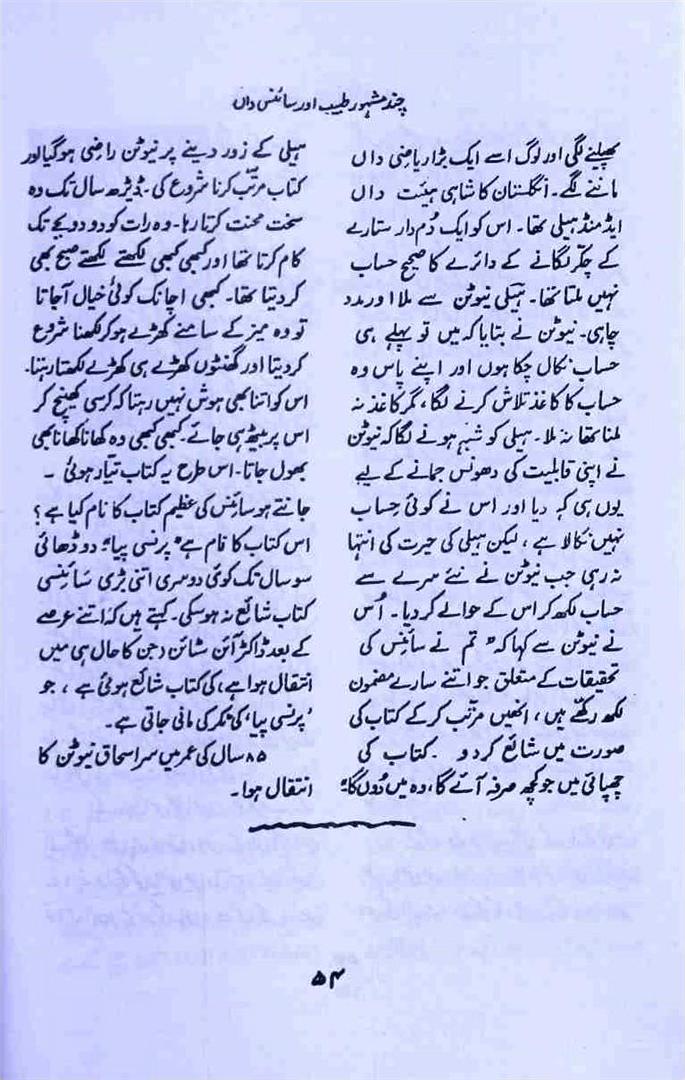 چند مشہور طبیب اور سائنس داں
پھیلنے لگی اور لوگ اسے ایک بڑا ریاضی داں
ماننے لگے۔ انگلستان کا شاہی ہیئت داں
ایڈمنڈ ہیلی تھا۔ اس کو ایک دُم دار ستارے
کے چکّر لگانے کے دائرے کا صحیح حساب
نہیں ملتا تھا۔ ہیلی نیوٹن سے ملا اور مدد
چاہی۔ نیوٹن نے بتایا کہ میں تو پہلے ہی
حساب نکال چکا ہوں اور اپنے پاس وہ
حساب کا کاغذ تلاش کرنے لگا، مگر کاغذ نہ
ملنا تھا نہ ملا۔ ہیلی کو شبہ ہونے لگا کہ نیوٹن
نے اپنی قابلیت کی دھونس جمانے کے لیے
یوں ہی کہہ دیا اور اس نے کوئی حساب
نہیں نکالا ہے، لیکن ہیلی کی حیرت کی انتہا
نہ رہی جب نیوٹن نے نئے سرے سے
حساب لکھ کر اس کے حوالے کر دیا۔ اُس
نے نیوٹن سے کہا کہ "تم نے سائنس کی
تحقیقات کے متعلق جو اتنے سارے مضمون
لکھ رکھے ہیں، انھیں مرتّب کر کے کتاب کی
صورت میں شائع کر دو۔ کتاب کی
چھپائی میں جو کچھ صرفہ آئے گا، وہ میں دُوں گا۔"
ہیلی کے زور دینے پر نیوٹن راضی ہو گیا اور
کتاب مرتّب کرنا شروع کی۔ ڈیڑھ سال تک وہ
سخت محنت کرتا رہا۔ وہ رات کو دو دو بجے تک
کام کرتا تھا اور کبھی کبھی لکھتے لکھتے صبح بھی
کر دیتا تھا۔ کبھی اچانک کوئی خیال آ جاتا
تو وہ میز کے سامنے کھڑے ہو کر لکھنا شروع
کر دیتا اور گھنٹوں کھڑے ہی کھڑے لکھتا رہتا۔
اس کو اتنا بھی ہوش نہیں رہتا کہ کرسی کھینچ کر
اس پر بیٹھ ہی جائے۔ کبھی کبھی وہ کھانا کھانا بھی
بھول جاتا۔ اس طرح یہ کتاب تیار ہوئی۔
جانتے ہو سائنس کی عظیم کتاب کا نام کیا ہے؟
اس کتاب کا نام ہے "پرنسی پیا"؛ دو ڈھائی
سو سال تک کوئی دوسری اتنی بڑی سائنسی
کتاب شائع نہ ہو سکی۔ کہتے ہیں کہ اتنے عرصے
کے بعد ڈاکٹر آئن شٹائن (جن کا حال ہی میں
انتقال ہوا ہے)، کی کتاب شائع ہوئی ہے، جو
'پرنسی پیا' کی ٹکر کی مانی جاتی ہے۔
۸۵ سال کی عمر میں سر اسحاق نیوٹن کا
انتقال ہوا۔
۵۴